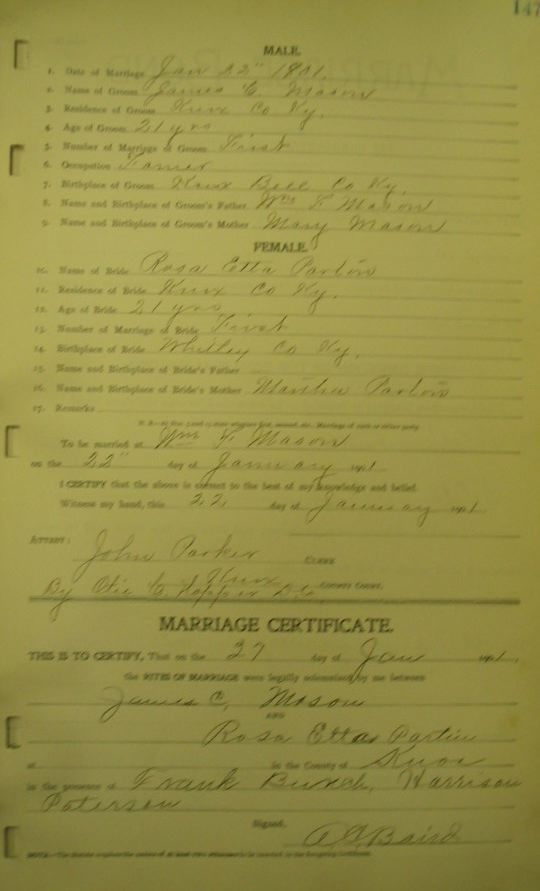 147
MALE.
1. Date of Marriage Jan 22" 1901.
2. Name of Groom James C. Mason
3. Residence of Groom Knox Co Ky.
4. Age of Groom 21 yrs
5. Number of Marriage of Groom First
6. Occupation Farmer
7. Birthplace of Groom Knox Bell Co Ky.
8. Name and Birthplace of Groom's Father Wm F Mason
9. Name and Birthplace of Groom's Mother Mary Mason
FEMALE.
10. Name of Bride Rosa Etta Partin
11. Residence of Bride Knox Co Ky.
12. Age of Bride 21 yrs
13. Number of Marriage of Bride First
14. Birthplace of Bride Whitley Co Ky.
15. Name and Birthplace of Bride's Father
16. Name and Birthplace of Bride's Mother Martha Partin
17. Remarks
To be married at Wm F Mason
on the 22" day of January 1901
I CERTIFY that the above is correct to the best of my knowledge and belief.
Witness my hand, this 22 day of January 1901
ATTEST:
John Parker CLERK
Knox COUNTY COURT.
By Otis C. Hopper D.C.
MARRIAGE CERTIFICATE.
THIS IS TO CERTIFY, That on the 27 day of Jan 1901,
the RITES OF MARRIAGE were legally solemnized by me between
James C. Mason
AND
Rosa Etta Partin
at in the County of Knox
in the presence of Frank Bunch, Harrison
Paterson
Signed,
Baird